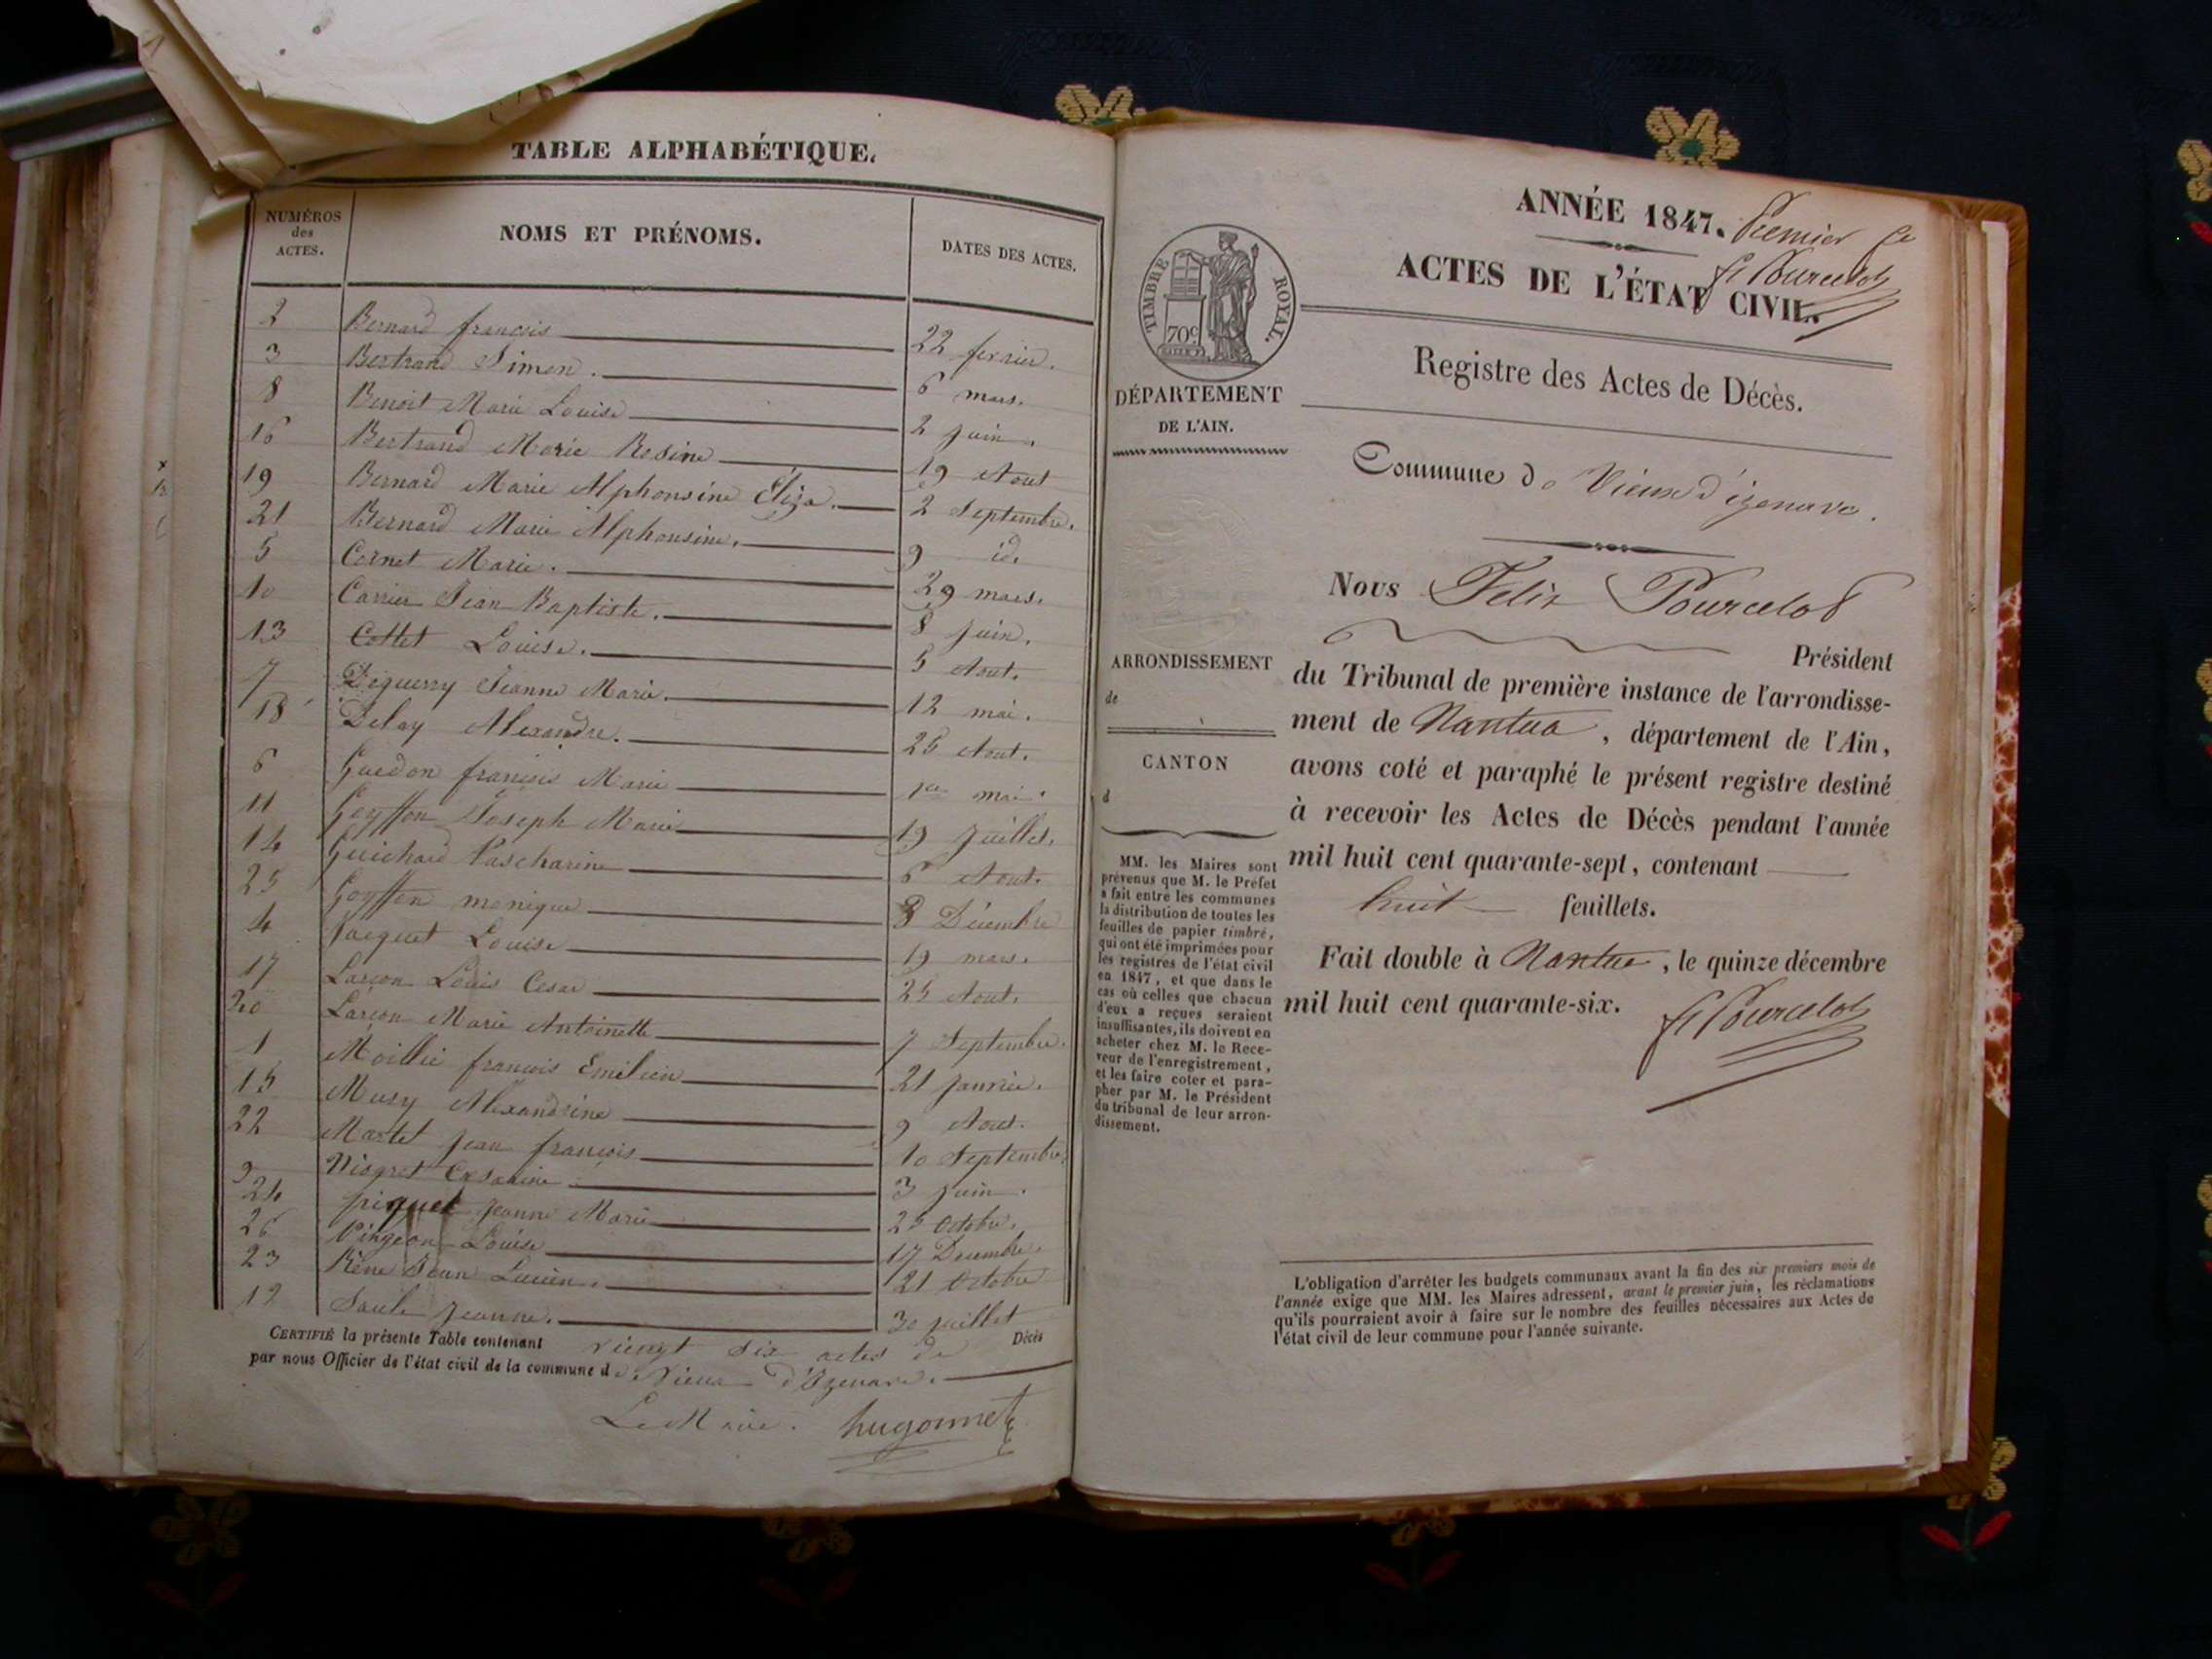 TABLE ALPHABÉTIQUE.
NUMÉROS des ACTES.
NOMS ET PRÉNOMS.
DATES DES ACTES.
2 Bernard françois 22 fevrier.
3 Bertrand Simon. 6 mars.
8 Benoit Marie Louise 2 juin.
16 Bertrand Marie Rosine 19 Aout
19 Bernard Marie Alphonsine Éliza. 2 Septembre.
21 Bernard Marie Alphonsine. 9 id.
5 Cornet Marie. 29 mars.
10 Carrier Jean Baptiste. 8 juin.
13 Cottet Louise. 5 Aout.
7 Deguerry Jeanne Marie. 12 mai.
18 Delay Alexandre. 25 Aout.
6 Guedon françois Marie 1er mai.
11 Goyffon Joseph Marie 19 juillet.
14 Guichard Pascharine 6 Aout.
25 Goyffon monique 8 Décembre
4 Jacquet Louise 19 mars.
17 Larçon Louis Cesar 25 Aout.
20 Larçon Marie Antoinette 7 Septembre.
1 Moillie françois Emilien 21 janvier.
15 Musy Alexandrine 9 Aout.
22 Martet jean françois 10 Septembre.
9 Niogret Cesarine 3 juin.
24 piquet jeanne Marie 25 Octobre.
26 Pingeon Louise 17 Decembre.
23 Rêne Jean Lucien. 21 Octobre
12 Savle jeanne. 30 juillet
CERTIFIÉ la présente Table contenant viengt six actes de Décès
par nous Officier de l'état civil de la commune de Vieux d'Izenave.
Le Maire. hugonnet
ANNÉE 1847. Premier
F Pourcelot
ACTES DE L'ÉTAT CIVIL.
TIMBRE ROYAL.
70c
Registre des Actes de Décès.
DÉPARTEMENT
DE L'AIN.
Commune de Vieux d'izenave.
Nous Felix Pourcelot
Président
ARRONDISSEMENT
de
CANTON
d
du Tribunal de première instance de l'arrondisse-
ment de Nantua, département de l'Ain,
avons coté et paraphé le présent registre destiné
à recevoir les Actes de Décès pendant l'année
mil huit cent quarante-sept, contenant
huit feuillets.
Fait double à Nantua, le quinze décembre
mil huit cent quarante-six.
F Pourcelot
MM. les Maires sont
prévenus que M. le Préfet
a fait entre les communes
la distribution de toutes les
feuilles de papier timbré,
qui ont été imprimées pour
les registres de l'état civil
en 1847, et que dans le
cas où celles que chacun
d'eux a reçues seraient
insuffisantes, ils doivent en
acheter chez M. le Rece-
veur de l'enregistrement,
et les faire coter et para-
pher par M. le Président
du tribunal de leur arron-
dissement.
L'obligation d'arrêter les budgets communaux avant la fin des six premiers mois de
l'année exige que MM. les Maires adressent, avant le premier juin, les réclamations
qu'ils pourraient avoir à faire sur le nombre des feuilles nécessaires aux Actes de
l'état civil de leur commune pour l'année suivante.